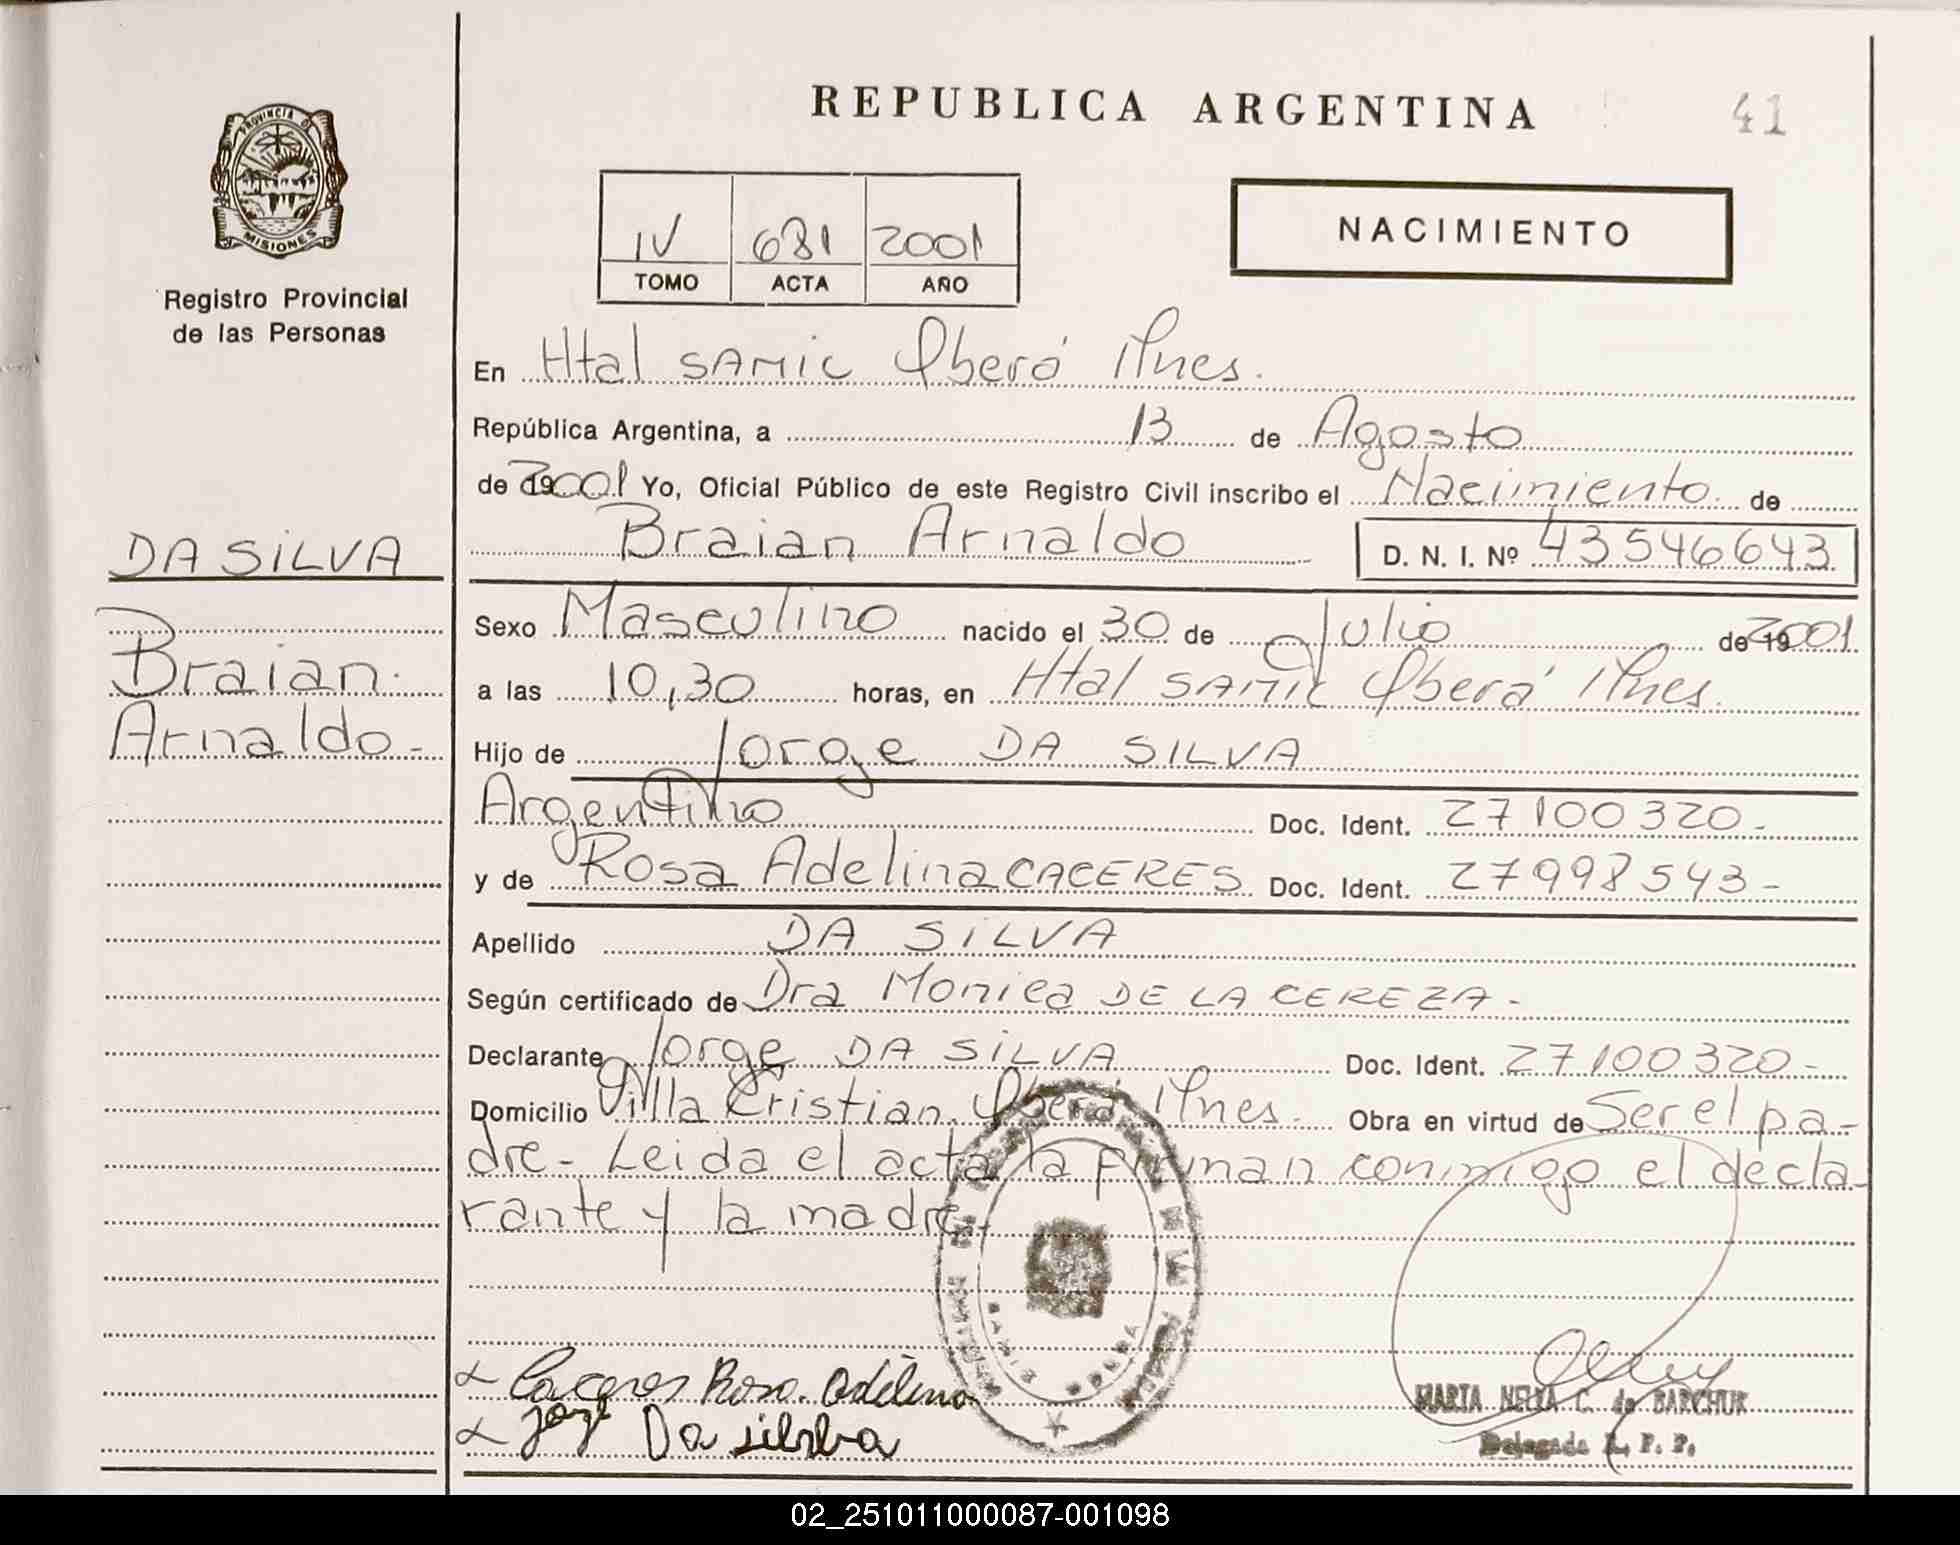 REPUBLICA ARGENTINA
41
PROVINCIA DE
MISIONES
Registro Provincial
de las Personas
IV 681 2001
TOMO ACTA AÑO
NACIMIENTO
En Htal SAMIC Oberá Mnes.
República Argentina, a 13 de Agosto
de 2001 Yo, Oficial Público de este Registro Civil inscribo el Nacimiento de
Braian Arnaldo D. N. I. Nº 43546643
DA SILVA
Braian
Arnaldo-
Sexo Masculino nacido el 30 de Julio de 2001
a las 10,30 horas, en Htal SAMIC Oberá Mnes.
Hijo de Jorge DA SILVA
Argentino Doc. Ident. 27100320-
y de Rosa Adelina CACERES Doc. Ident. 27998543-
Apellido DA SILVA
Según certificado de Dra Monica DE LA CEREZA-
Declarante Jorge DA SILVA Doc. Ident. 27100320-
Domicilio Villa Cristian. Oberá Mnes. Obra en virtud de Ser el pa-
dre- Leida el acta la firman conmigo el decla-
rante y la madre-
Caceres Rosa. Adelina
Jorge Da silva
MARTA NELVA C. de BARCHUK
Delegada R. P. P.
02_251011000087-001098